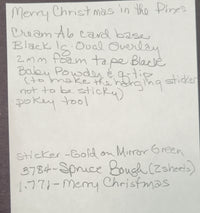 Merry Christmas in the Pines
Cream A6 card base
Black Oval Overlay
2mm foam tape Black
Baby Powder & q-tip
(to make the sticker
not to be sticky)
pokey tool
Sticker - Gold on Mirror Green
3784 - Spruce Bough (2 sheets)
1.771 - Merry Christmas